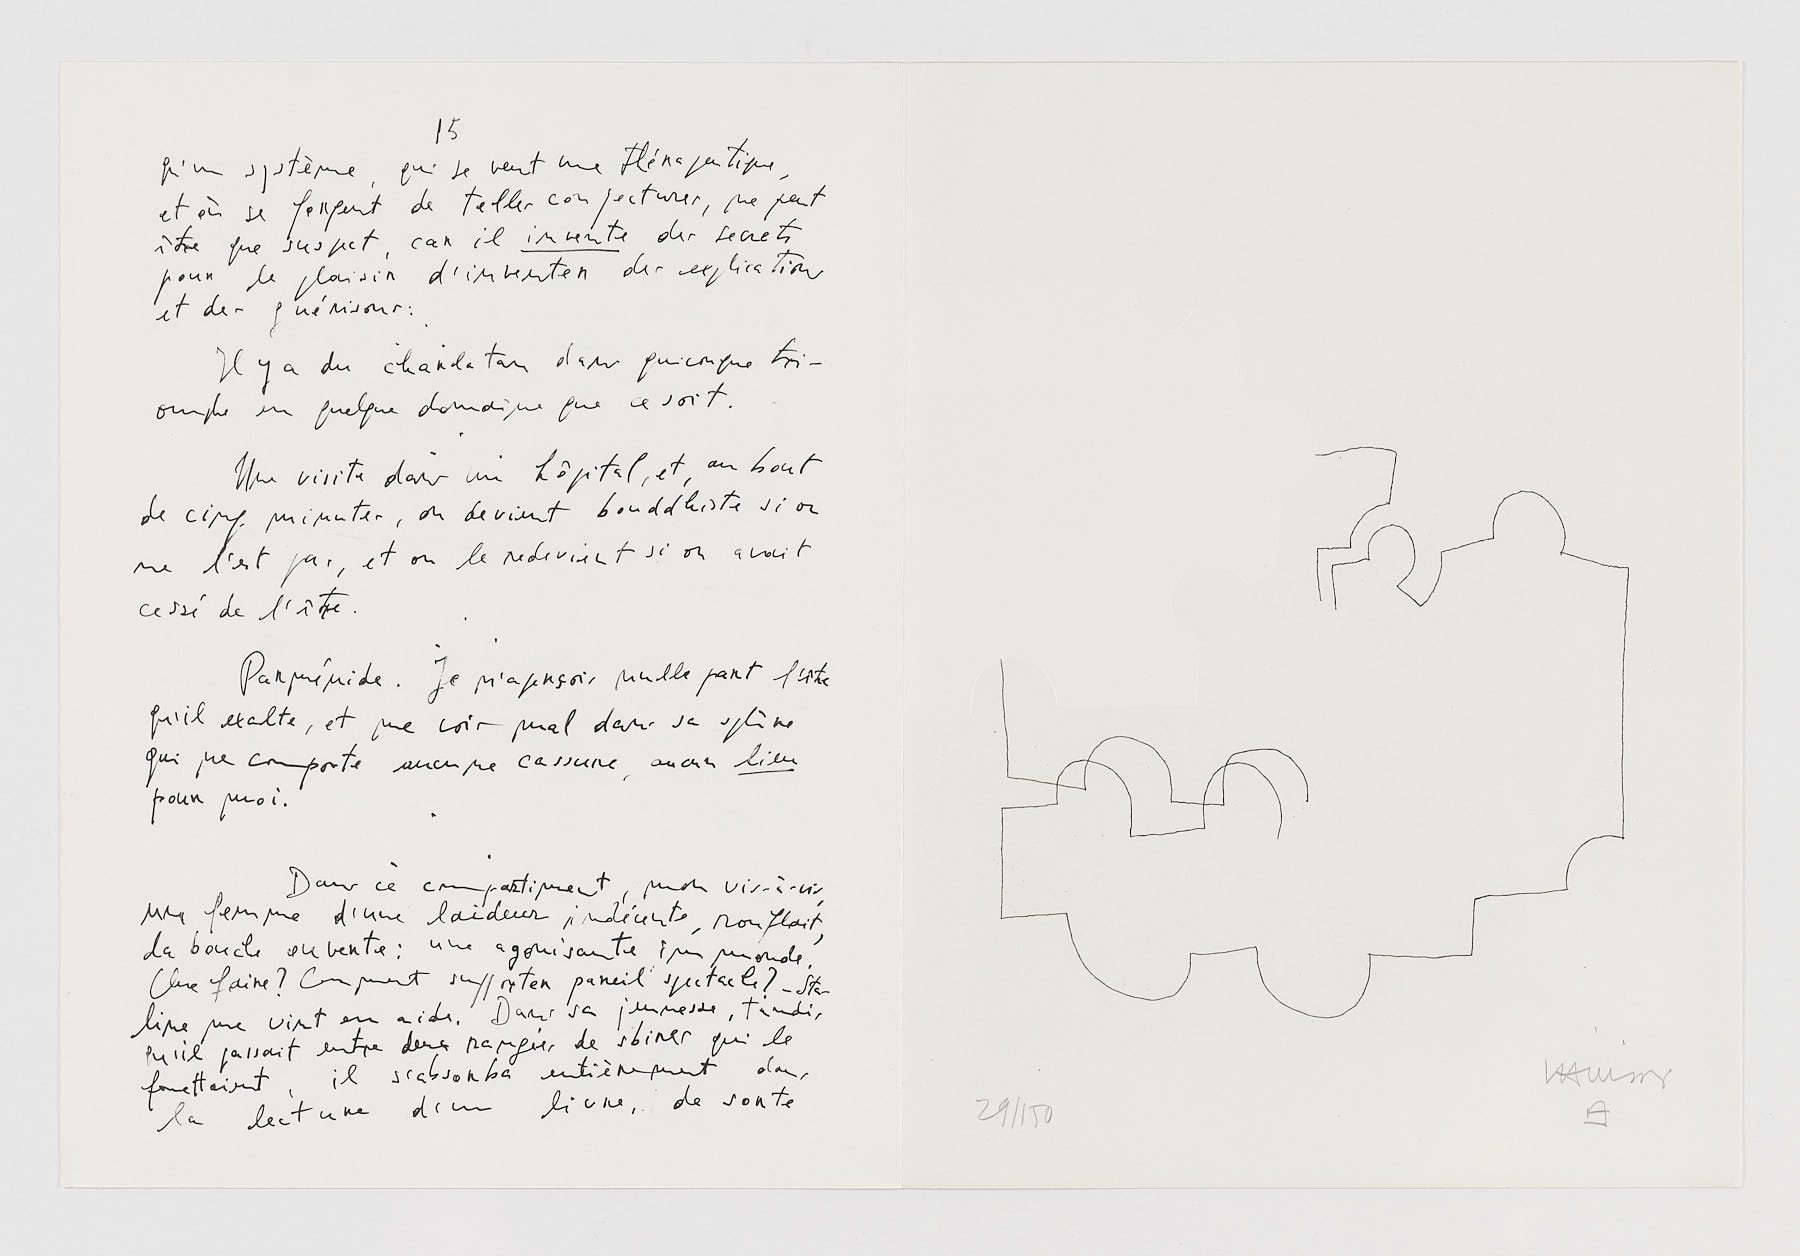 15
qu'un système, qui se veut une thérapeutique,
et où se forgent de telles conjectures, ne peut
être que suspect, car il invente des secrets
pour le plaisir d'inventer des explications
et des guérisons.
Il y a du charlatan dans quiconque tri-
omphe en quelque domaine que ce soit.
Une visite dans un hôpital, et, au bout
de cinq minutes, on devient bouddhiste si on
ne l'est pas, et on le redevient si on avait
cessé de l'être.
Parménide. Je n'aperçois nulle part l'être
qu'il exalte, et me vois mal dans sa sphère
qui ne comporte aucune cassure, aucun lieu
pour moi.
Dans ce compartiment, mon vis-à-vis,
une femme d'une laideur indécente, ronflait,
la bouche ouverte : une agonisante immonde.
Que faire ? Comment supporter pareil spectacle ? - Sta-
line me vint en aide. Dans sa jeunesse, tandis
qu'il passait entre deux rangées de sbires qui le
fouettaient, il s'absorba entièrement dans
la lecture d'un livre, de sorte
29/150